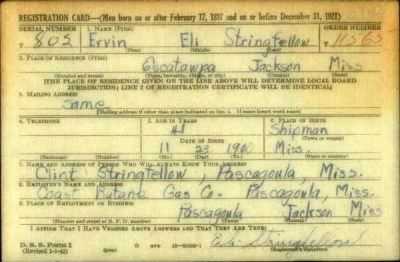 REGISTRATION CARD—(Men born on or after February 17, 1897 and on or before December 31, 1921)
SERIAL NUMBER 1. NAME (Print) ORDER NUMBER
803 Ervin Eli Stringfellow 11263
(First) (Middle) (Last)
2. PLACE OF RESIDENCE (Print)
Escatawpa Jackson Miss
(Number and street) (Town, township, village, or city) (County) (State)
[THE PLACE OF RESIDENCE GIVEN ON THE LINE ABOVE WILL DETERMINE LOCAL BOARD
JURISDICTION; LINE 2 OF REGISTRATION CERTIFICATE WILL BE IDENTICAL]
3. MAILING ADDRESS
Same
[Mailing address if other than place indicated on line 2. If same insert word same]
4. TELEPHONE 5. AGE IN YEARS 6. PLACE OF BIRTH
41 Shipman
DATE OF BIRTH (Town or county)
11 23 1900 Miss.
(Mo.) (Day) (Yr.) (State or country)
7. NAME AND ADDRESS OF PERSON WHO WILL ALWAYS KNOW YOUR ADDRESS
Clint Stringfellow Pascagoula, Miss.
8. EMPLOYER'S NAME AND ADDRESS
Coast Butane Gas Co- Pascagoula, Miss.
9. PLACE OF EMPLOYMENT OR BUSINESS
Pascagoula Jackson Miss
(Number and street or R. F. D. number) (Town) (County) (State)
I AFFIRM THAT I HAVE VERIFIED ABOVE ANSWERS AND THAT THEY ARE TRUE.
D. S. S. FORM 1
(Revised 1-1-42) Eli Stringfellow